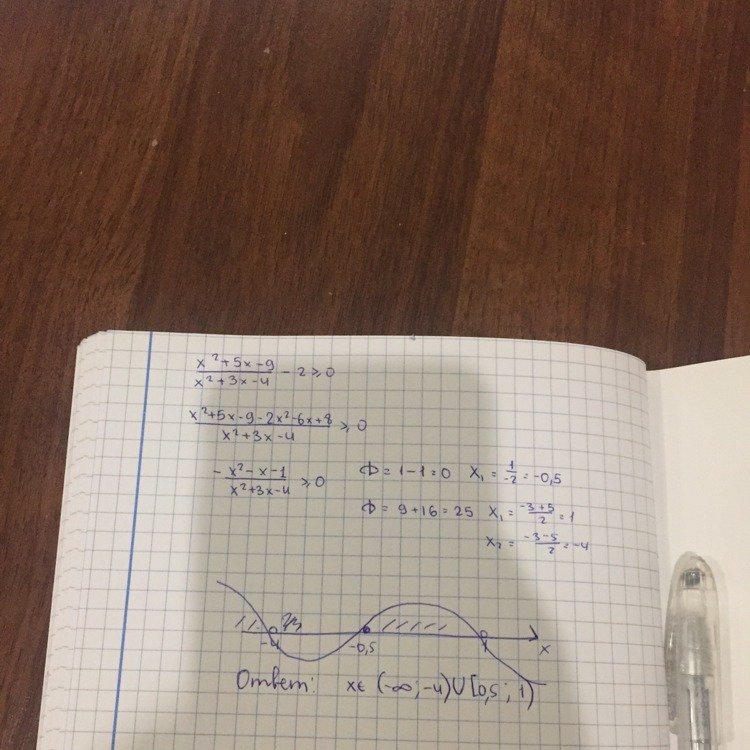 x²+5x-9 / x²+3x-4 - 2 ⩾ 0
x²+5x-9-2x²-6x+8 / x²+3x-4 ⩾ 0
-x²-x-1 / x²+3x-4 ⩾ 0
Ф = 1-1=0 x₁ = 1/-2 = -0,5
Ф = 9+16=25 x₁ = -3+5 / 2 = 1
x₂ = -3-5 / 2 = -4
-4 -0,5 1 x
Ответ: x∈ (-∞; -4)∪[0,5; 1)